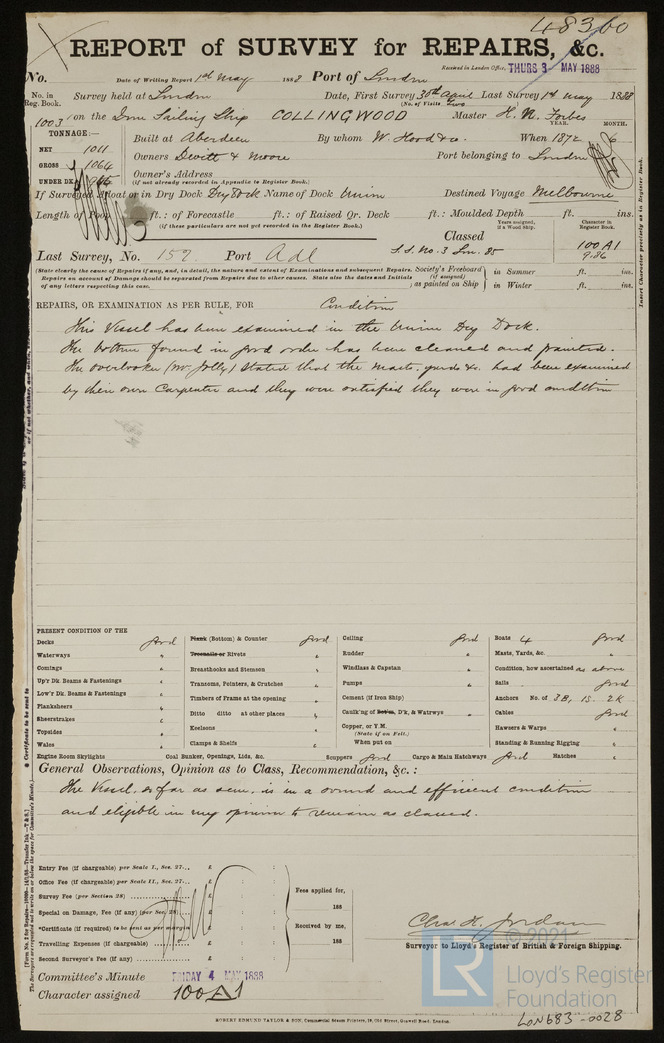 48360
REPORT of SURVEY for REPAIRS, &c.
Received in London Office, THURS 3 MAY 1888
No. Date of Writing Report 1st May 1888 Port of London
No. in Reg. Book. Survey held at London Date, First Survey 30th April Last Survey 1st May 1888
(No. of Visits two)
1003 on the Iron Sailing Ship COLLINGWOOD Master H. N. Forbes
TONNAGE:— YEAR. MONTH.
NET 1011 Built at Aberdeen By whom W. Hood & Co. When 1872 6
GROSS 1064 Owners Devitt & Moore Port belonging to London
UNDER DK. Owner's Address
(if not already recorded in Appendix to Register Book.)
If Surveyed Afloat or in Dry Dock Dry Dock Name of Dock Union Destined Voyage Melbourne
Length of Poop ft.: of Forecastle ft.: of Raised Qr. Deck ft.: Moulded Depth ft. ins.
(if these particulars are not yet recorded in the Register Book.) Years assigned, if a Wood Ship. Character in Register Book.
Classed
Last Survey, No. 152. Port Adl S.S. No. 3 Lon. 85 100 A1
9.86
(State clearly the cause of Repairs if any, and, in detail, the nature and extent of Examinations and subsequent Repairs. Society's Freeboard in Summer ft. ins.
Repairs on account of Damage should be separated from Repairs due to other causes. State also the dates and Initials (if assigned)
of any letters respecting this case. ) as painted on Ship in Winter ft. ins.
REPAIRS, OR EXAMINATION AS PER RULE, FOR Condition
This Vessel has been examined in the Union Dry Dock.
The bottom found in good order has been cleaned and painted.
The overlooker (Mr. Jolly) stated that the masts, yards &c. had been examined
by their own Carpenter and they were satisfied they were in good condition
PRESENT CONDITION OF THE
Decks good Plank (Bottom) & Counter good Ceiling good Boats 4 good
Waterways " Treenails or Rivets " Rudder " Masts, Yards, &c. "
Comings " Breasthooks and Stemson " Windlass & Capstan " Condition, how ascertained as above
Up'r Dk. Beams & Fastenings " Transoms, Pointers, & Crutches " Pumps " Sails good
Low'r Dk. Beams & Fastenings " Timbers of Frame at the opening " Cement (if Iron Ship) Anchors No. of 3B, 1S. 2K
Planksheers " Ditto ditto at other places " Caulk'g of Bot'm, D'k, & Watrwys " Cables good
Sheerstrakes " Keelsons " Copper, or Y.M. Hawsers & Warps "
Topsides " (State if on Felt.)
Wales " Clamps & Shelfs " When put on Standing & Running Rigging "
Engine Room Skylights Coal Bunker, Openings, Lids, &c. Scuppers good Cargo & Main Hatchways good Hatches "
General Observations, Opinion as to Class, Recommendation, &c. :
The Vessel, so far as seen, is in a sound and efficient condition
and eligible in my opinion to remain as classed.
Entry Fee (if chargeable) per Scale I., Sec. 27... £ : :
Office Fee (if chargeable) per Scale II., Sec. 27... £ : : Fees applied for,
Survey Fee (per Section 28) £ : : 188
Special on Damage, Fee (if any) (per Sec. 28) £ : :
*Certificate (if required) to be sent as per margin £ : : Received by me,
Travelling Expenses (if chargeable) £ : : 188
Second Surveyor's Fee (if any) £ : :
Chas. H. Jordan
Surveyor to Lloyd's Register of British & Foreign Shipping.
Committee's Minute FRIDAY 4 MAY 1888
Character assigned 100 A1
ROBERT EDMUND TAYLOR & SON, Commercial Steam Printers, 19, Old Street, Goswell Road, London.
Insert Character precisely as in Register Book.
© 2021
LR
Lloyd's Register
Foundation
LON683-0028